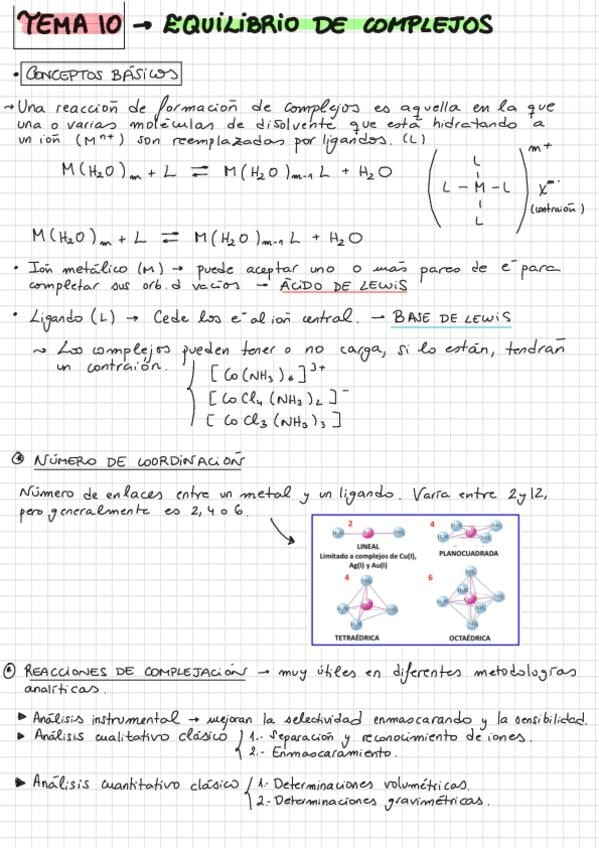 TEMA 10 → EQUILIBRIO DE COMPLEJOS
• CONCEPTOS BÁSICOS
→ Una reacción de formación de complejos es aquella en la que
una o varias moléculas de disolvente que está hidratando a
un ión (Mⁿ⁺) son reemplazadas por ligandos. (L)
M(H₂O)ₘ + L ⇌ M(H₂O)ₘ₋₁ L + H₂O
L
L - M - L
L
m+
Xᵐ⁻
(contraión)
M(H₂O)ₘ + L ⇌ M(H₂O)ₘ₋₁ L + H₂O
• Ión metálico (M) → puede aceptar uno o más pares de e⁻ para
completar sus orb. d vacíos → ÁCIDO DE LEWIS
• Ligando (L) → Cede los e⁻ al ión central. → BASE DE LEWIS
~ Los complejos pueden tener o no carga, si lo están, tendrán
un contraión.
[Co(NH₃)₆]³⁺
[CoCl₄(NH₃)₂]⁻
[CoCl₃(NH₃)₃]
NÚMERO DE COORDINACIÓN
Número de enlaces entre un metal y un ligando. Varía entre 2 y 12,
pero generalmente es 2, 4 o 6.
2
H₃N NH₃
LINEAL
Limitado a complejos de Cu(I),
Ag(I) y Au(I)
4
H₃N NH₃
H₃N NH₃
PLANOCUADRADA
4
NH₃
H₃N NH₃
NH₃
TETRAÉDRICA
6
NH₃
H₃N NH₃
H₃N NH₃
NH₃
OCTAÉDRICA
REACCIONES DE COMPLEJACIÓN → muy útiles en diferentes metodologías
analíticas.
▶ Análisis instrumental → mejoran la selectividad enmascarando y la sensibilidad.
▶ Análisis cualitativo clásico { 1.- Separación y reconocimiento de iones.
2.- Enmascaramiento.
▶ Análisis cuantitativo clásico { 1.- Determinaciones volumétricas.
2.- Determinaciones gravimétricas.